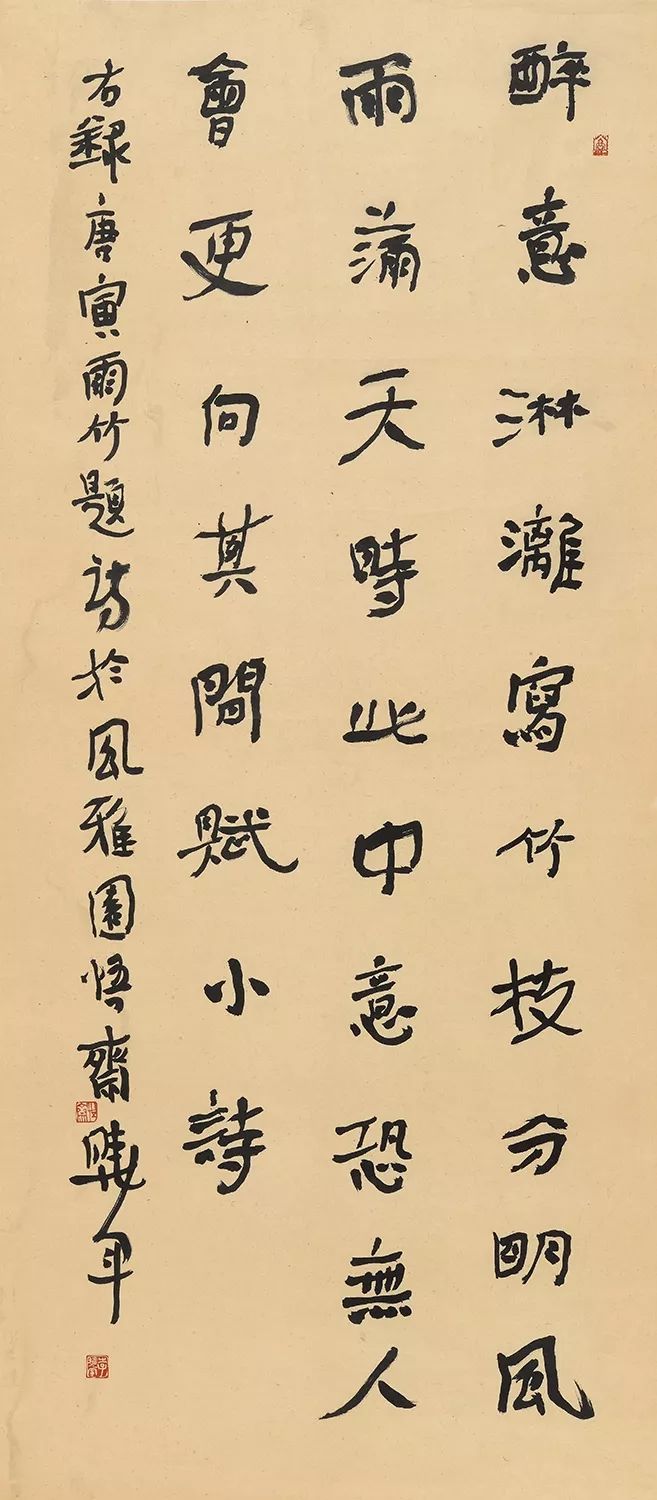 醉意淋漓寫竹枝分明風
雨滿天時此中意恐無人
會更向其間賦小詩
右録唐寅雨竹題詩於風雅園悟齋曉軍